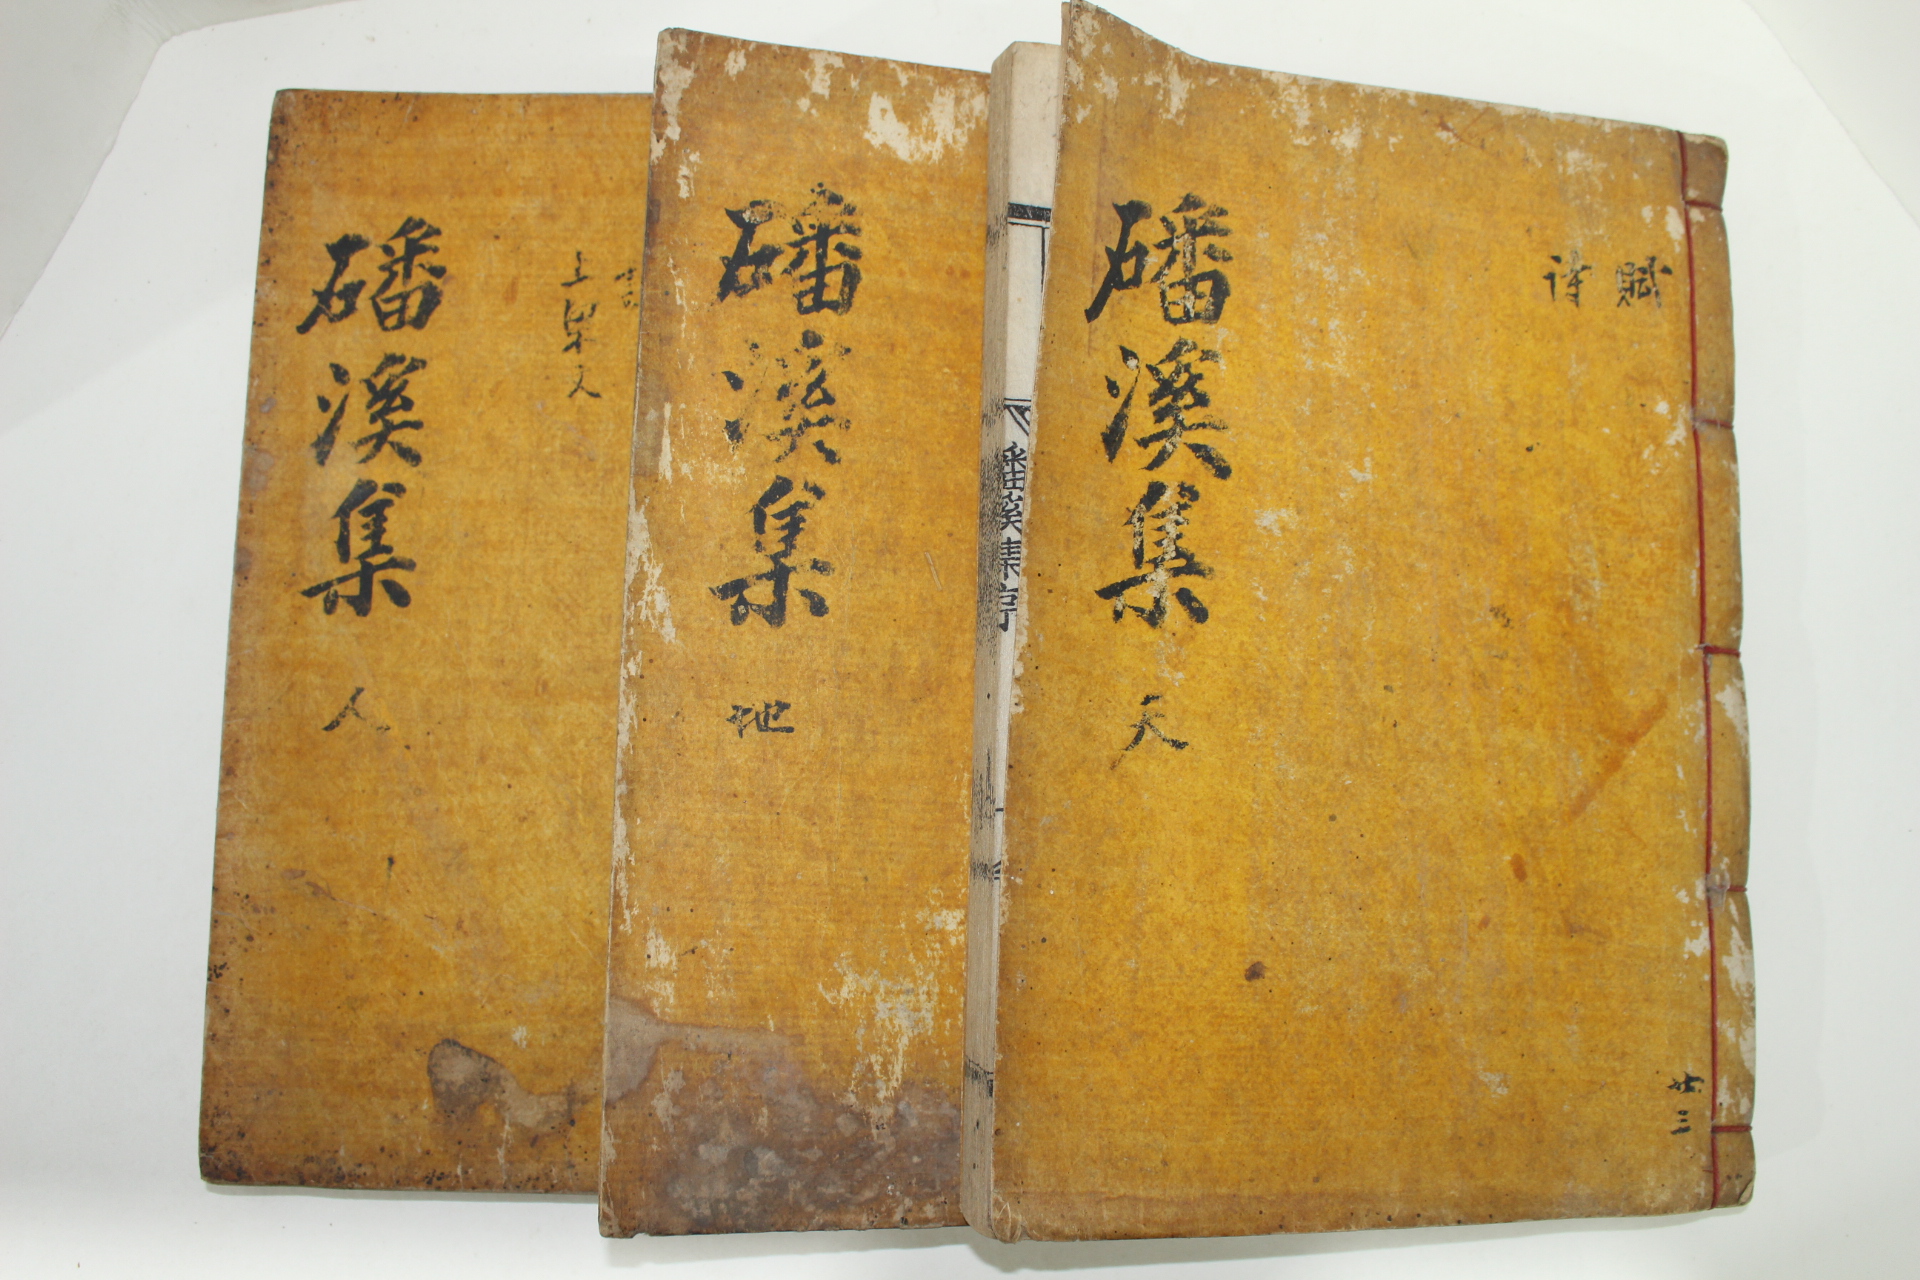 賦
詩
磻溪集 天
共三
磻溪集序
磻溪集 地
上梁文
磻溪集 人